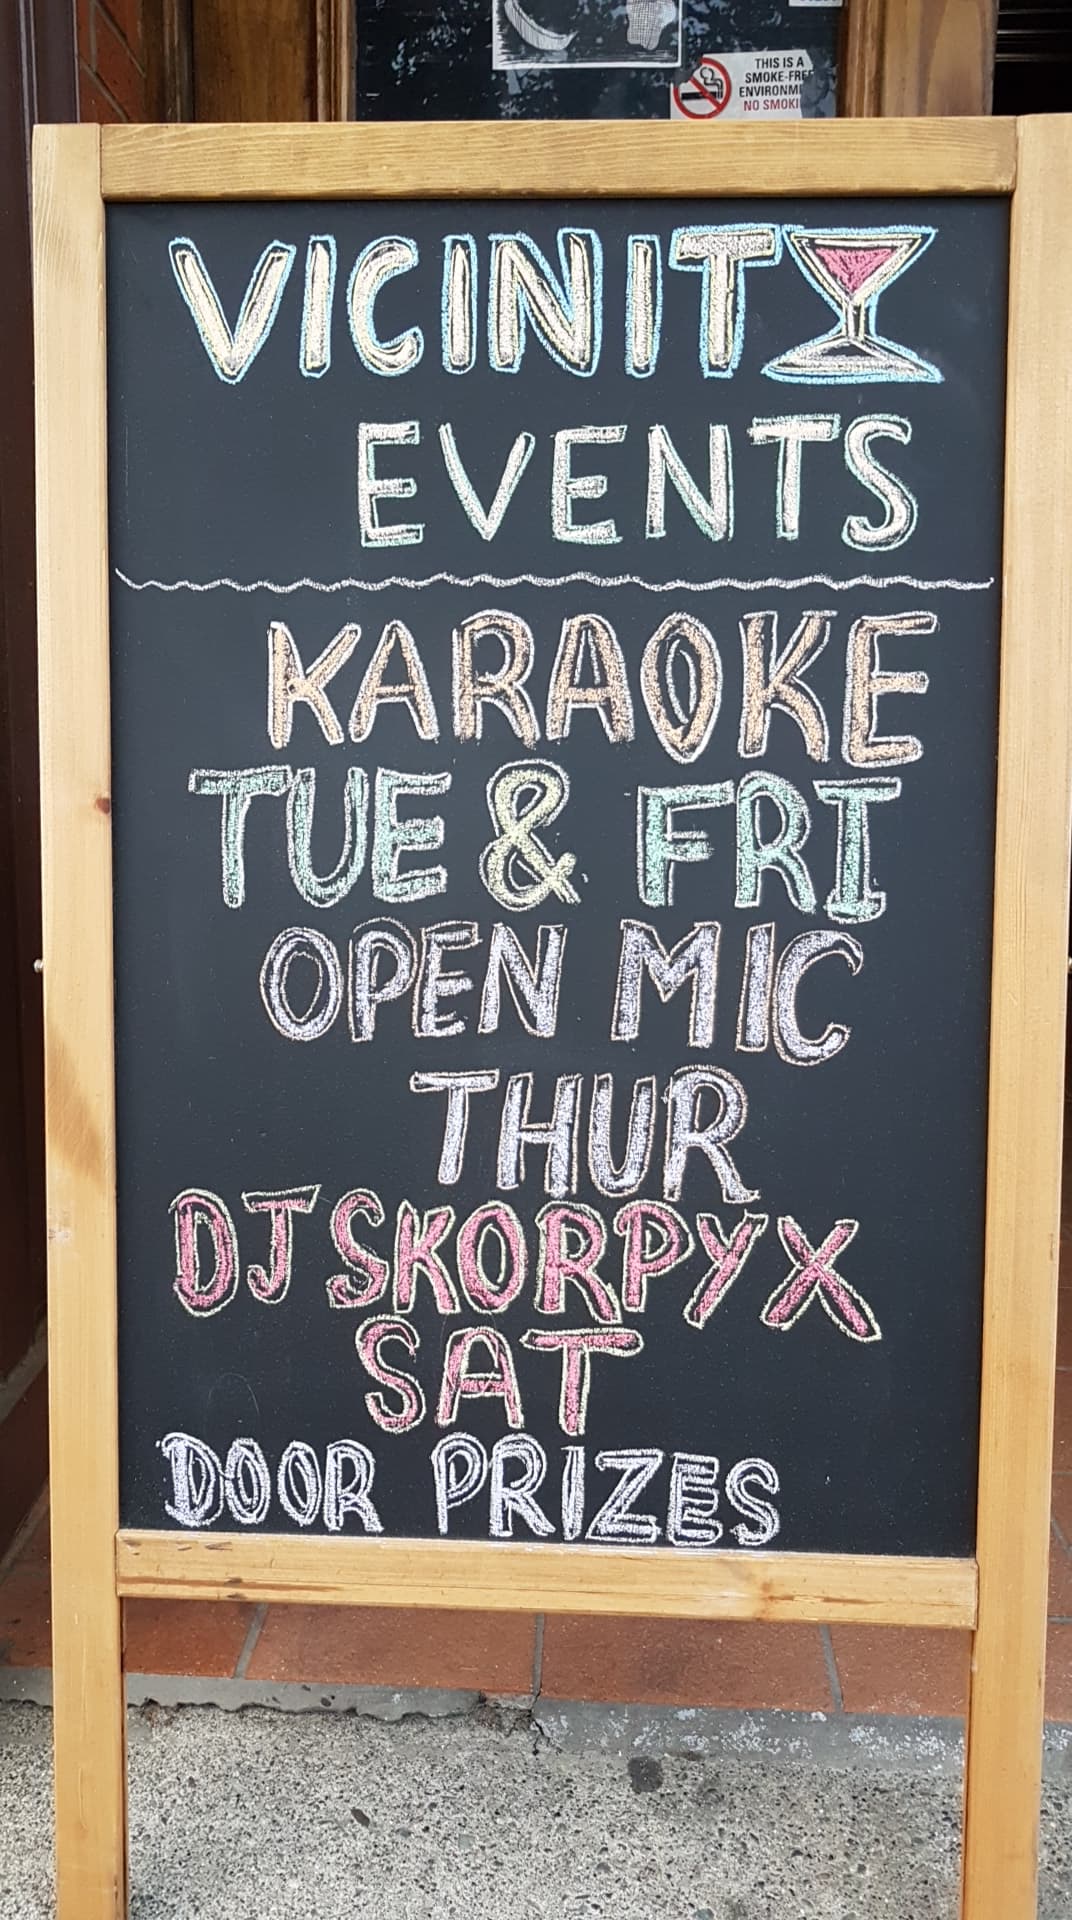 THIS IS A
SMOKE-FREE
NO
VICINITY
EVENTS
KARAOKE
TUE & FRI
OPEN MIC
THUR
DJ SKORPYX
SAT
DOOR PRIZES